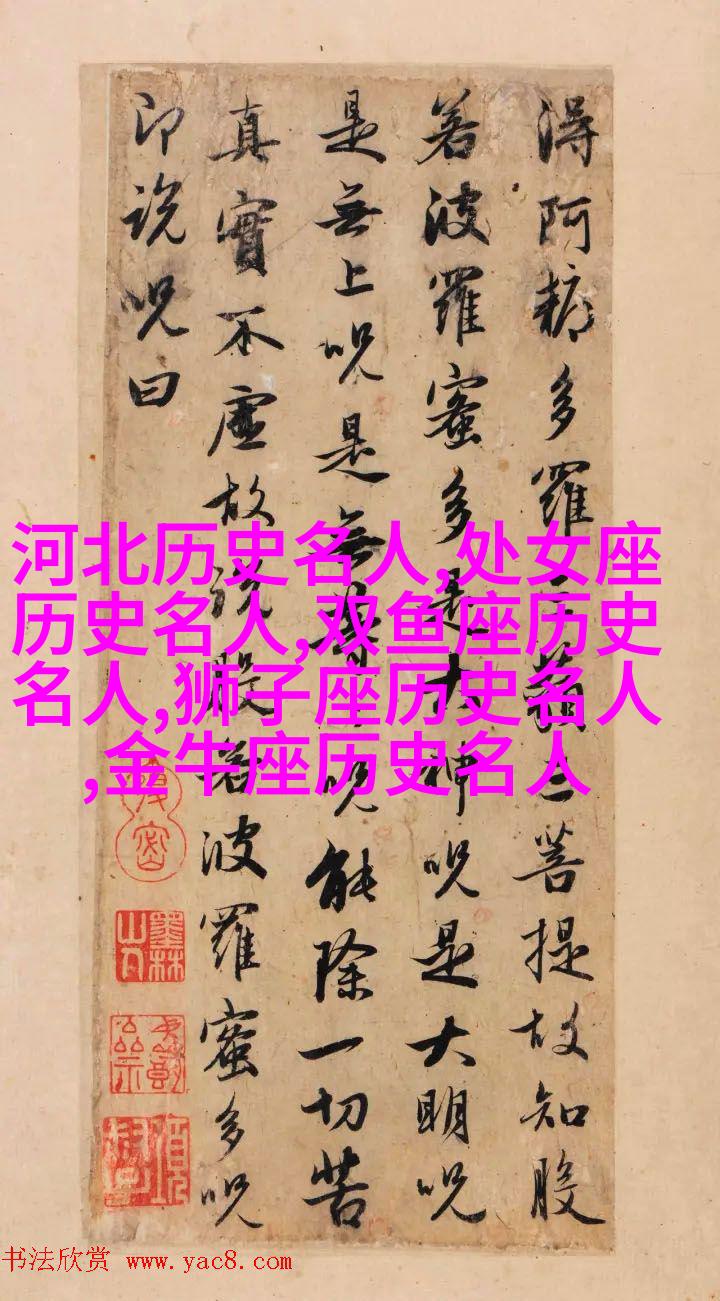 得阿耨多羅三藐三菩提故知般
若波羅蜜多是大神呪是大明呪
是無上呪是無等等呪能除一切苦
真實不虛故說般若波羅蜜多呪
即說呪曰
墨林山人
河北历史名人,处女座
历史名人,双鱼座历史
名人,狮子座历史名人
,金牛座历史名人
书法欣赏 www.yac8.com